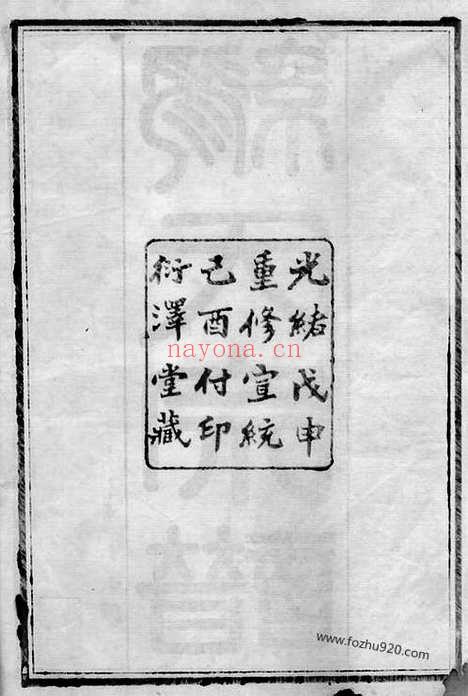 光緒戊申
重修宣統
己酉付印
衍澤堂藏
nayona.cn
www.fozhu920.com